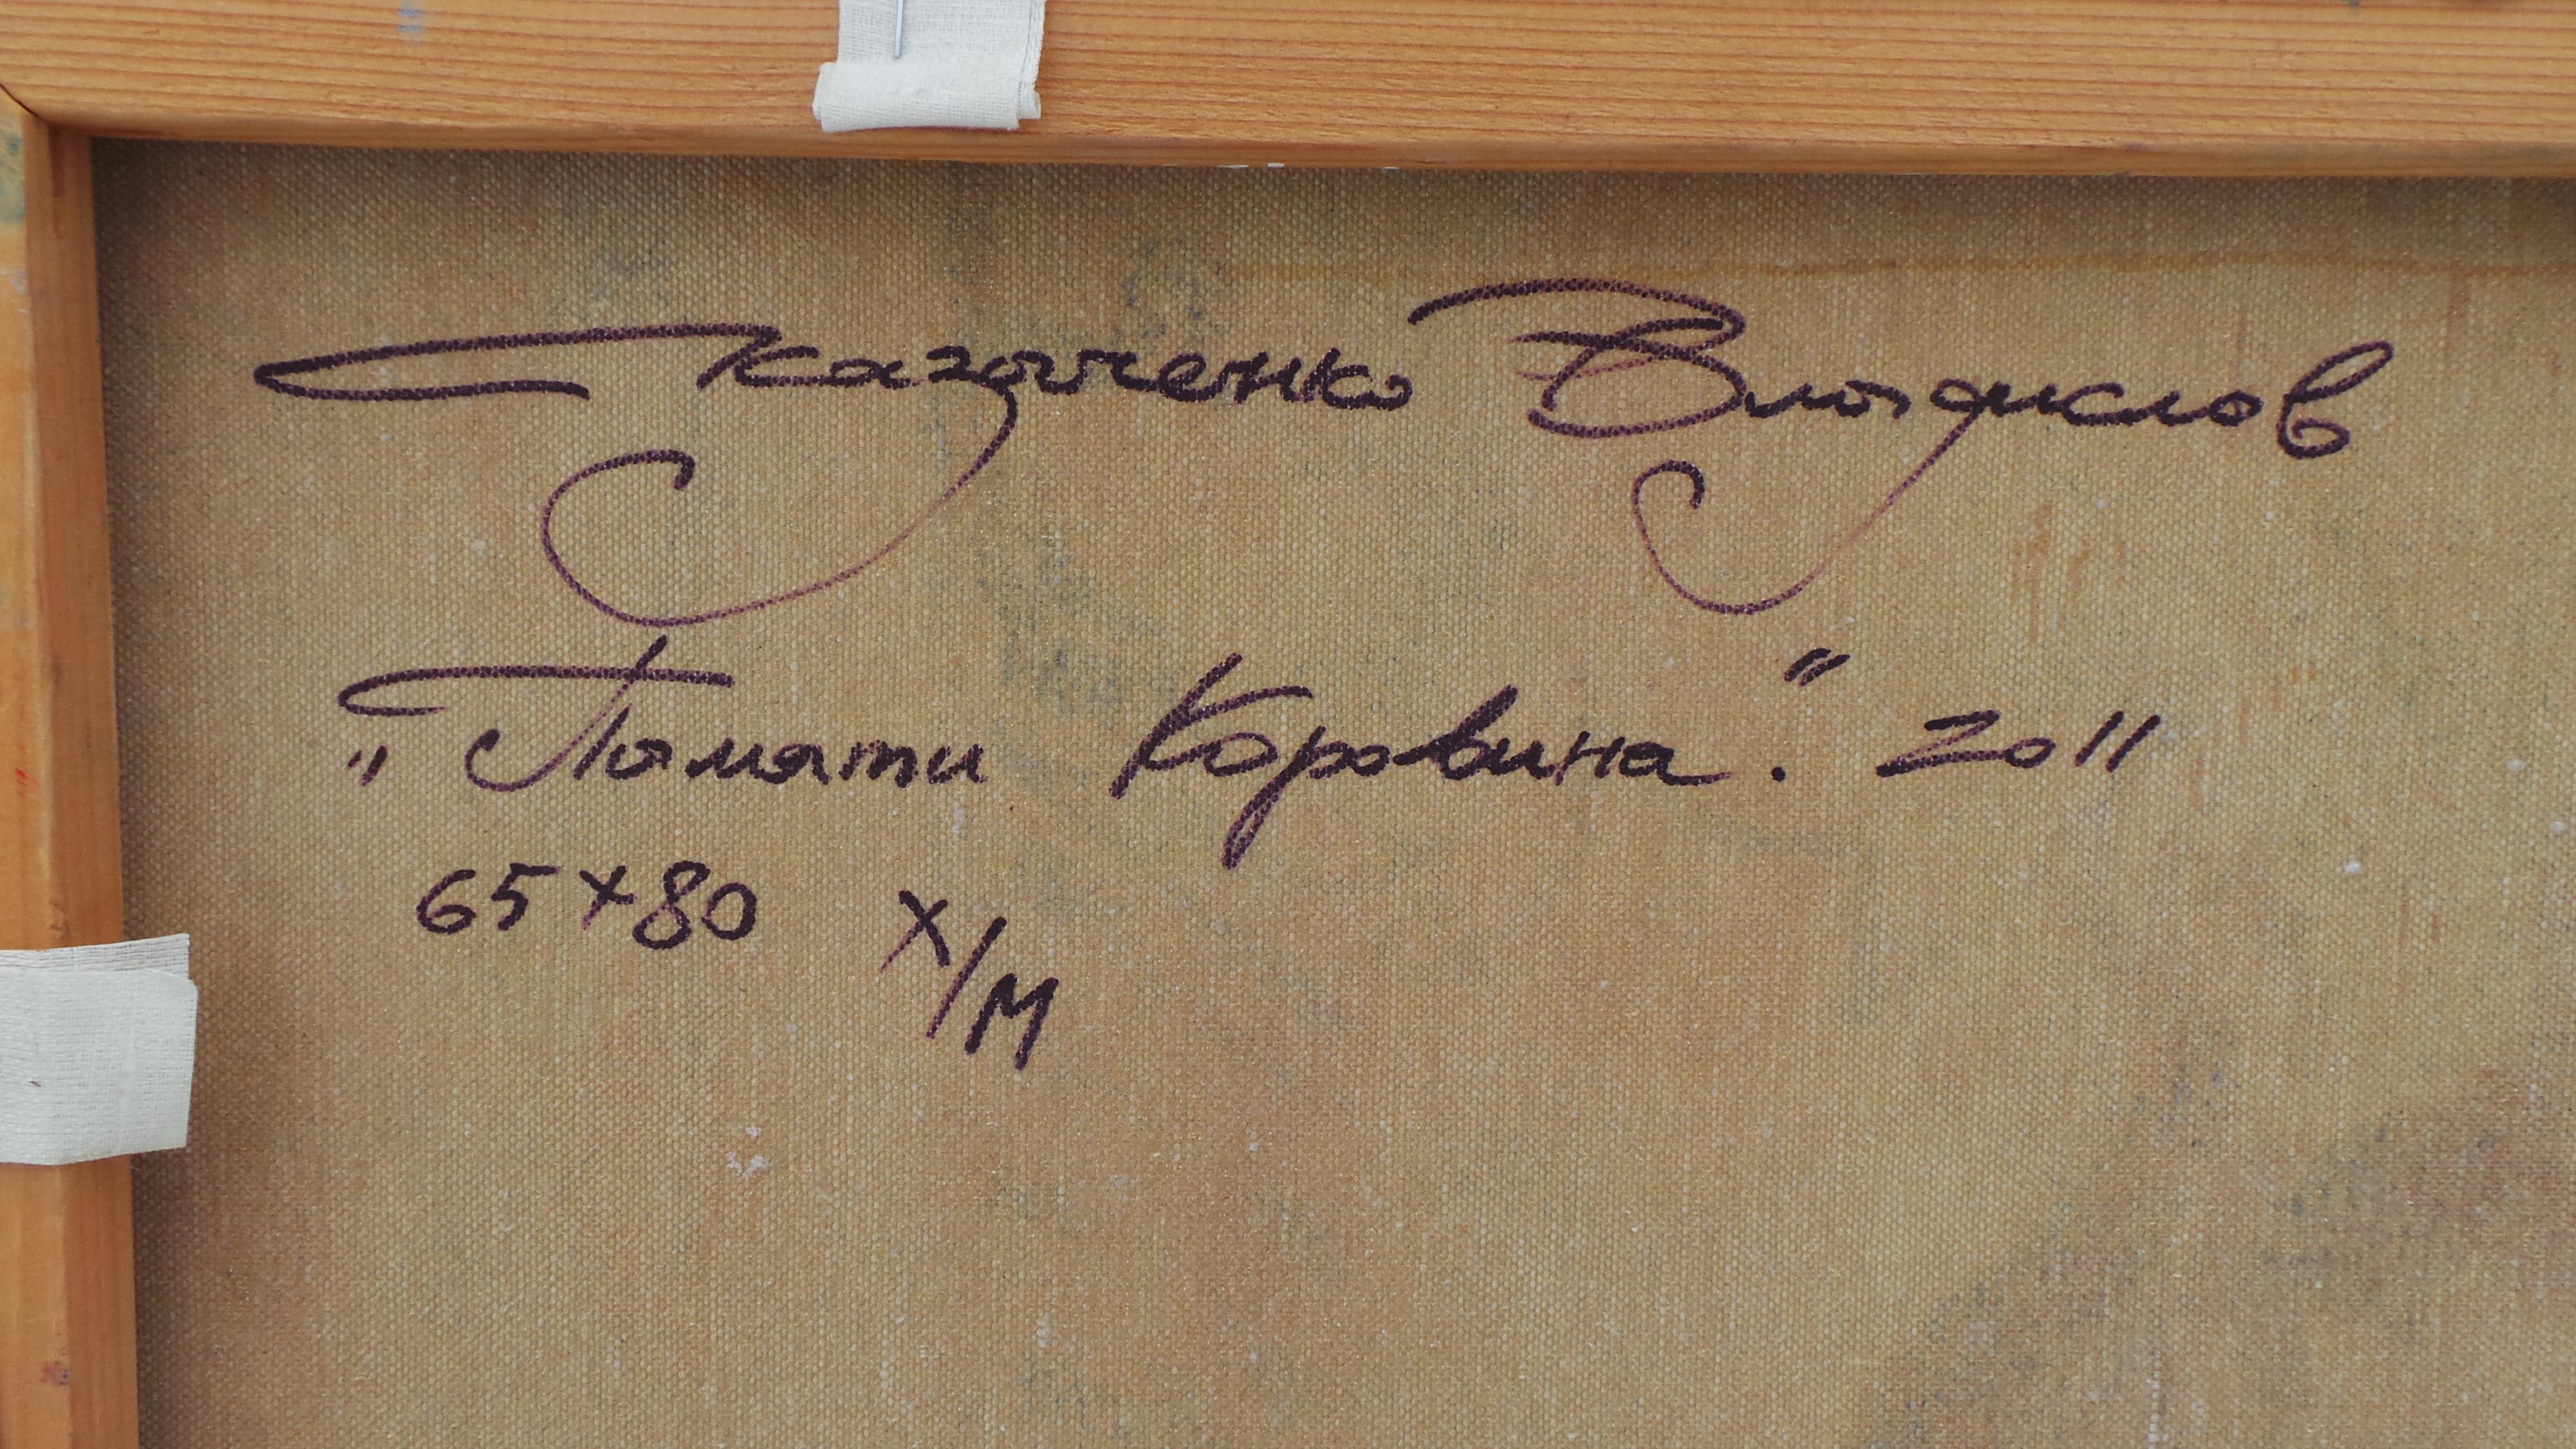 Казаченко Владислав
„Памяти Коровина." 2011
65×80 х/м